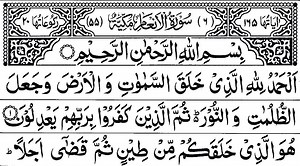 اٰیَاتُهَا ١٦٥ (٦) سُوْرَةُ الْاَنْعَامِ مَكِّیَّةٌ (٥٥) رُكُوْعَاتُهَا ٢٠
بِسْمِ اللّٰهِ الرَّحْمٰنِ الرَّحِیْمِ
اَلْحَمْدُ لِلّٰهِ الَّذِیْ خَلَقَ السَّمٰوٰتِ وَ الْاَرْضَ وَ جَعَلَ
الظُّلُمٰتِ وَ النُّوْرَ ۬ؕ ثُمَّ الَّذِیْنَ كَفَرُوْا بِرَبِّهِمْ یَعْدِلُوْنَ ۝۱
هُوَ الَّذِیْ خَلَقَكُمْ مِّنْ طِیْنٍ ثُمَّ قَضٰۤی اَجَلًا ؕ